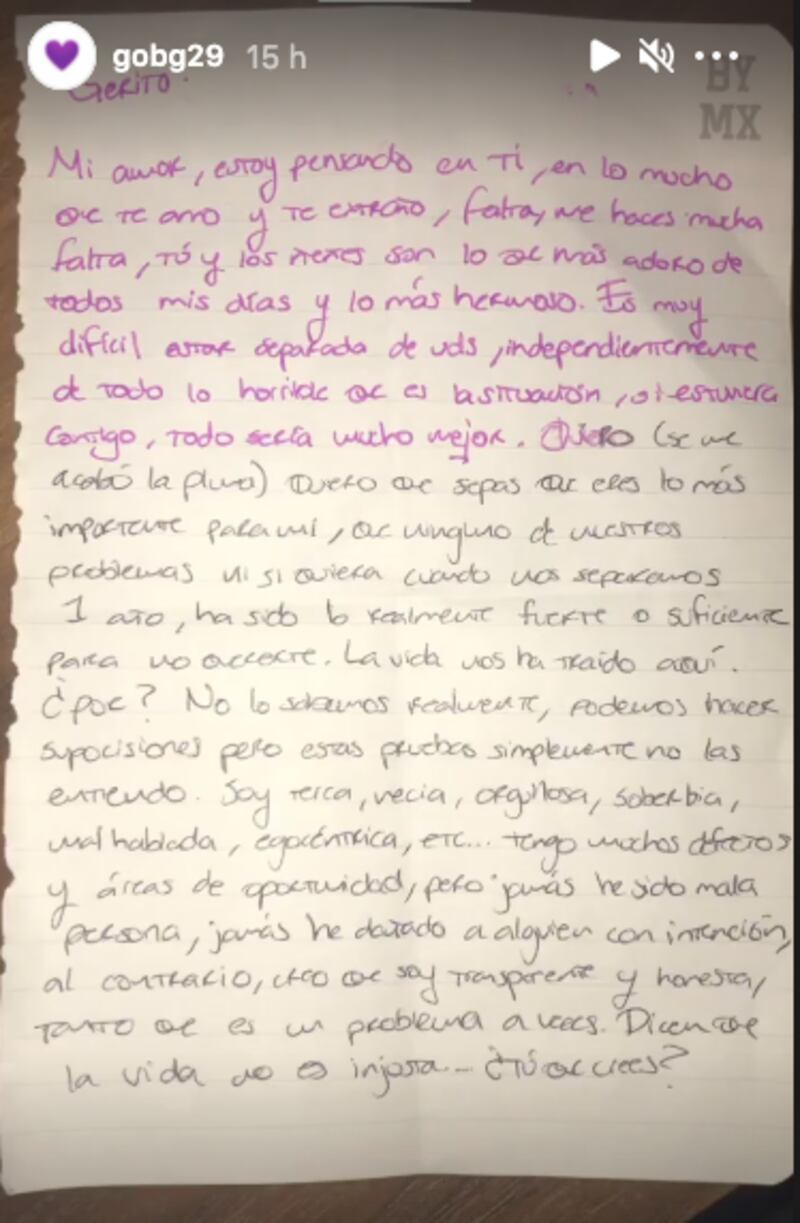 gobg29 15 h
Gerito.
BY
MX
Mi amor, estoy pensando en Ti, en lo mucho
qe te amo y te extraño, falta, me haces mucha
falta, tú y los nenes son lo qe más adoro de
todos mis días y lo más hermoso. Es muy
difícil estar separada de uds, independientemente
de todo lo horrible qe es la situación, si estuviera
contigo, todo sería mucho mejor. Quiero (se me
acabó la pluma) Quiero qe sepas qe eres lo más
importante para mí, qe ninguno de nuestros
problemas ni si quiera cuando nos separamos
1 año, ha sido lo realmente fuerte o suficiente
para no . La vida nos ha traído aquí.
¿Pqe? No lo sabemos realmente, podemos hacer
supocisiones pero estas pruebas simplemente no las
entiendo. Soy terca, necia, orgullosa, soberbia,
mal hablada, egocéntrica, etc... tengo muchos defectos
y áreas de oportunidad, pero jamás he sido mala
persona, jamás he dañado a alguien con intención,
al contrario, creo qe soy transparente y honesta,
tanto qe es un problema a veces. Dicen qe
la vida no es injusta... ¿Tú qe crees?